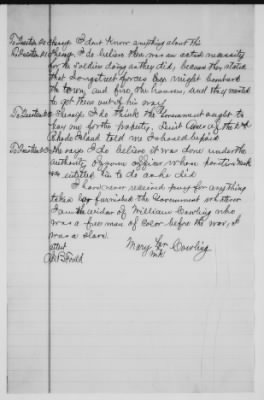 She says I dont Know anything about this
She says I do believe there was an actual necessity
for the soldiers doing as they did, because they stated
that Longstreet forces might bombard
the town, and fire the houses, and they wanted
to get them out of his way
She says, I do think the Government ought to
pay me for the property, Lieut of the 2nd
Rhode Island told me I should be paid
She says I do believe it was done under the
authority of some officer whose position
entitled him to do as he did
I have never received pay for anything
taken by or furnished the Government whatever
I am the widow of William Cowling who
was a free man of color before the war, I
was a slave
Mary Ann Cowling
attest
mk
Todd